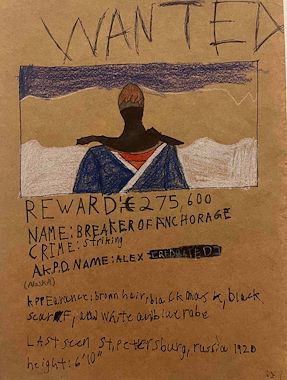 WANTED
REWARD: € 275,600
NAME: BREAKER OF ANCHORAGE
CRIME: Striking
A.K.P.D. NAME: ALEX
(ALASKA)
Appearance: brown hair, black mask, black
scarf, and white and blue robe
Last seen St. Petersburg, Russia 1920
height: 6'10"